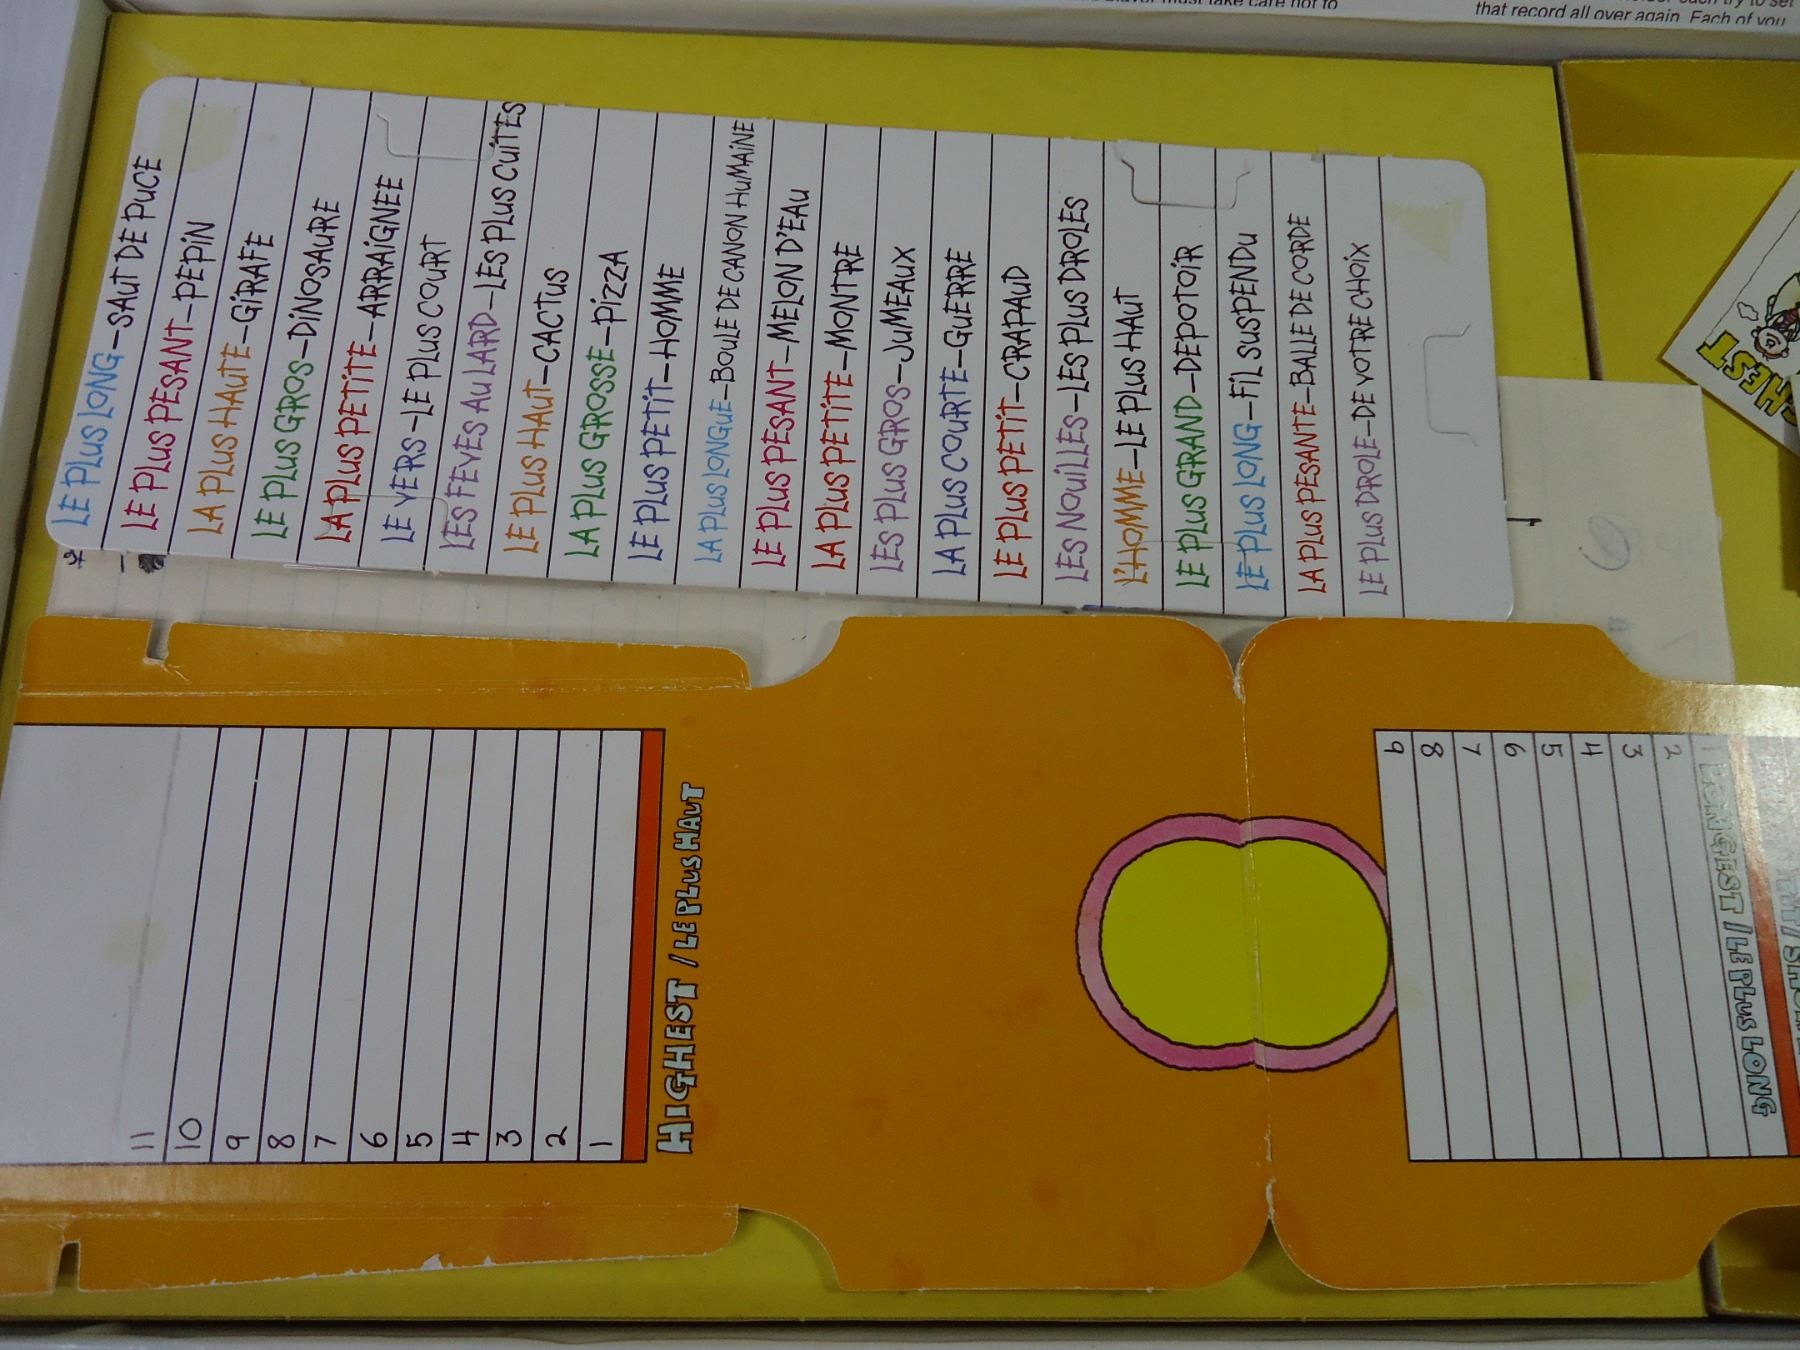 must take care not to
that record all over again. Each of you
LE PLUS LONG-SAUT DE PUCE
LE PLUS PESANT-PEPIN
LA PLUS HAUTE-GIRAFE
LE PLUS GROS-DINOSAURE
LA PLUS PETITE-ARRAIGNEE
LE VERS-LE PLUS COURT
LES FEVES AU LARD-LES PLUS CUITES
LE PLUS HAUT-CACTUS
LA PLUS GROSSE-PIZZA
LE PLUS PETIT-HOMME
LA PLUS LONGUE-BOULE DE CANON HUMAINE
LE PLUS PESANT-MELON D'EAU
LA PLUS PETITE-MONTRE
LES PLUS GROS-JUMEAUX
LA PLUS COURTE-GUERRE
LE PLUS PETIT-CRAPAUD
LES NOUILLES-LES PLUS DROLES
L'HOMME-LE PLUS HAUT
LE PLUS GRAND-DEPOTOIR
LE PLUS LONG-FIL SUSPENDU
LA PLUS PESANTE-BALLE DE CORDE
LE PLUS DROLE-DE VOTRE CHOIX
11
10
9
8
7
6
5
4
3
2
1
HIGHEST / LE PLUS HAUT
LONGEST / LE PLUS LONG
1
2
3
4
5
6
7
8
9